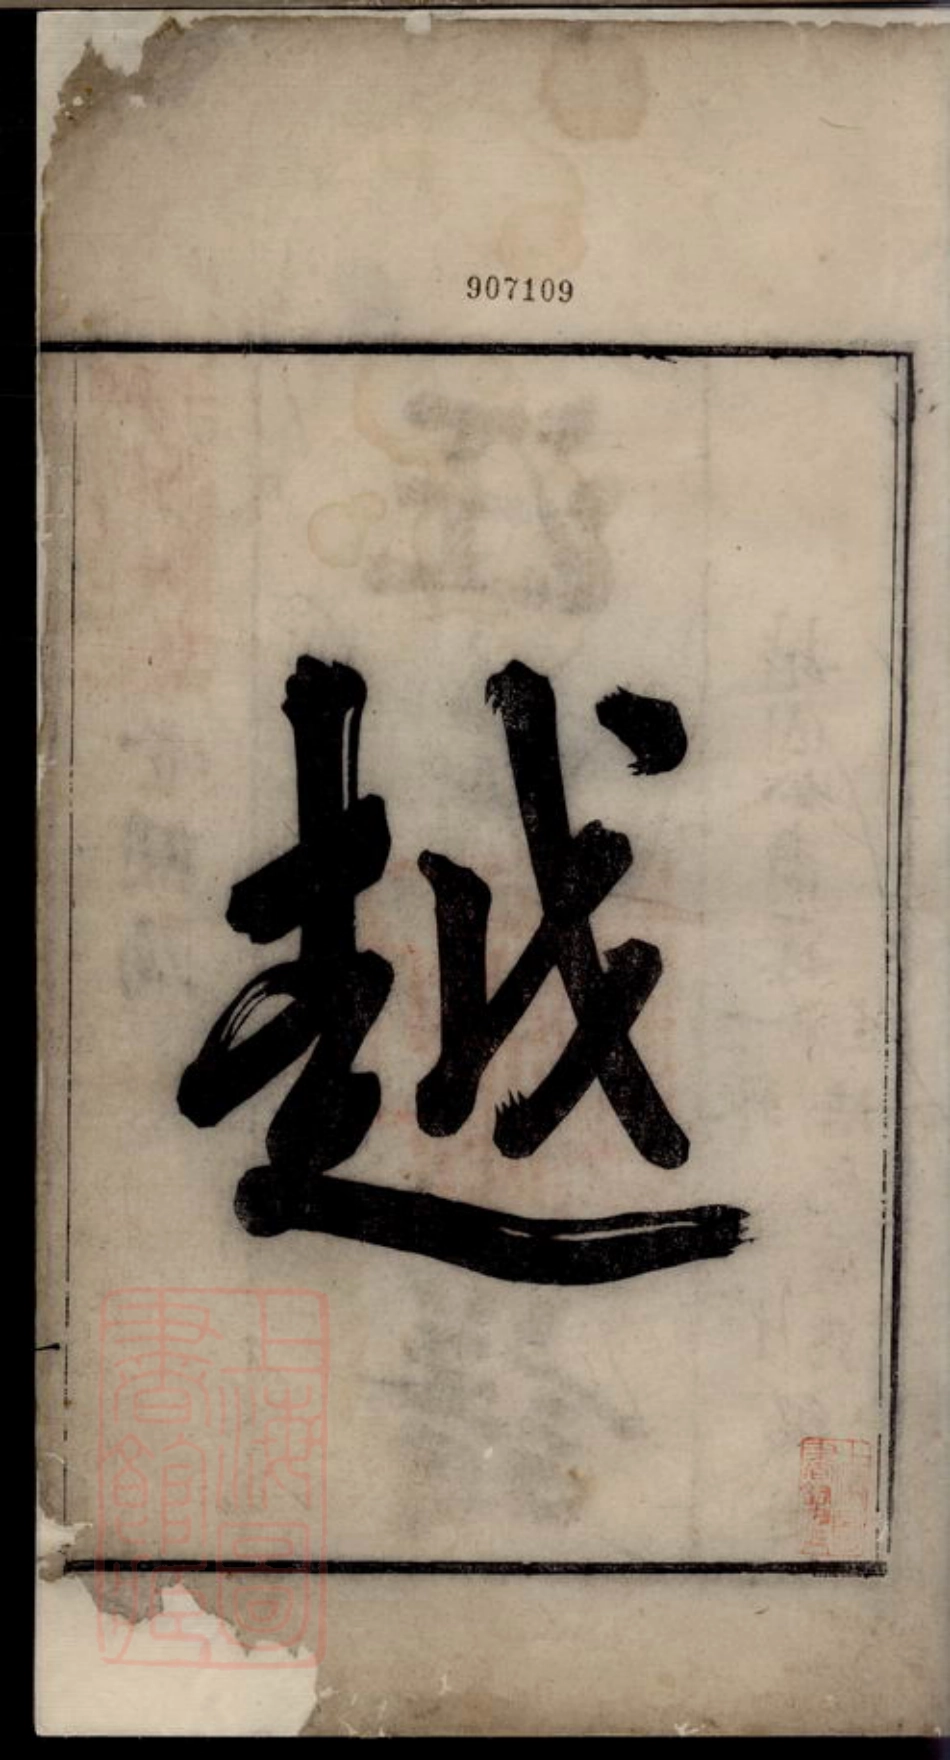 907109
越
上海圖
書館藏
上海圖
書館藏